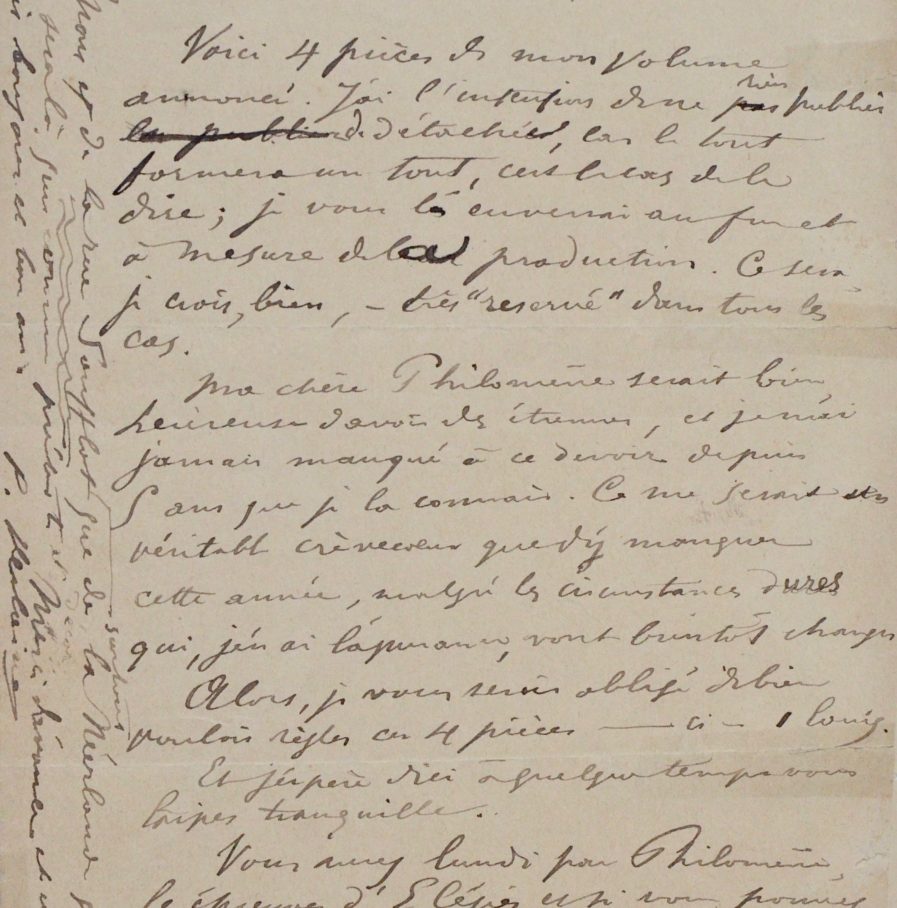 Voici 4 pièces de mon volume
annoncé. J'ai l'intention de ne rien publier
de détachées, car le tout
formera un tout, c'est le cas de le
dire ; je vous les enverrai au fur et
à mesure de la production. Ce sera
je crois, bien, – très "réservé" dans tous les
cas.
Ma chère Philomène serait bien
heureuse d'avoir des étrennes, et je n'ai
jamais manqué à ce devoir depuis
5 ans que je la connais. Ce me serait un
véritable crèvecoeur que d'y manquer
cette année, malgré les circonstances dures
qui, j'en ai l'espérance, vont bientôt changer
Alors, je vous serais obligé de bien
vouloir régler ces 4 pièces — ci – 1 louis.
Et j'espère d'ici à quelque temps vous
laisser tranquille.
Vous aurez lundi par Philomène,
les épreuves d'Elégies et si vous pouvez
nous et de la rue Soufflot que de la Néerlande
surtout
Merci d'avance
P. Verlaine